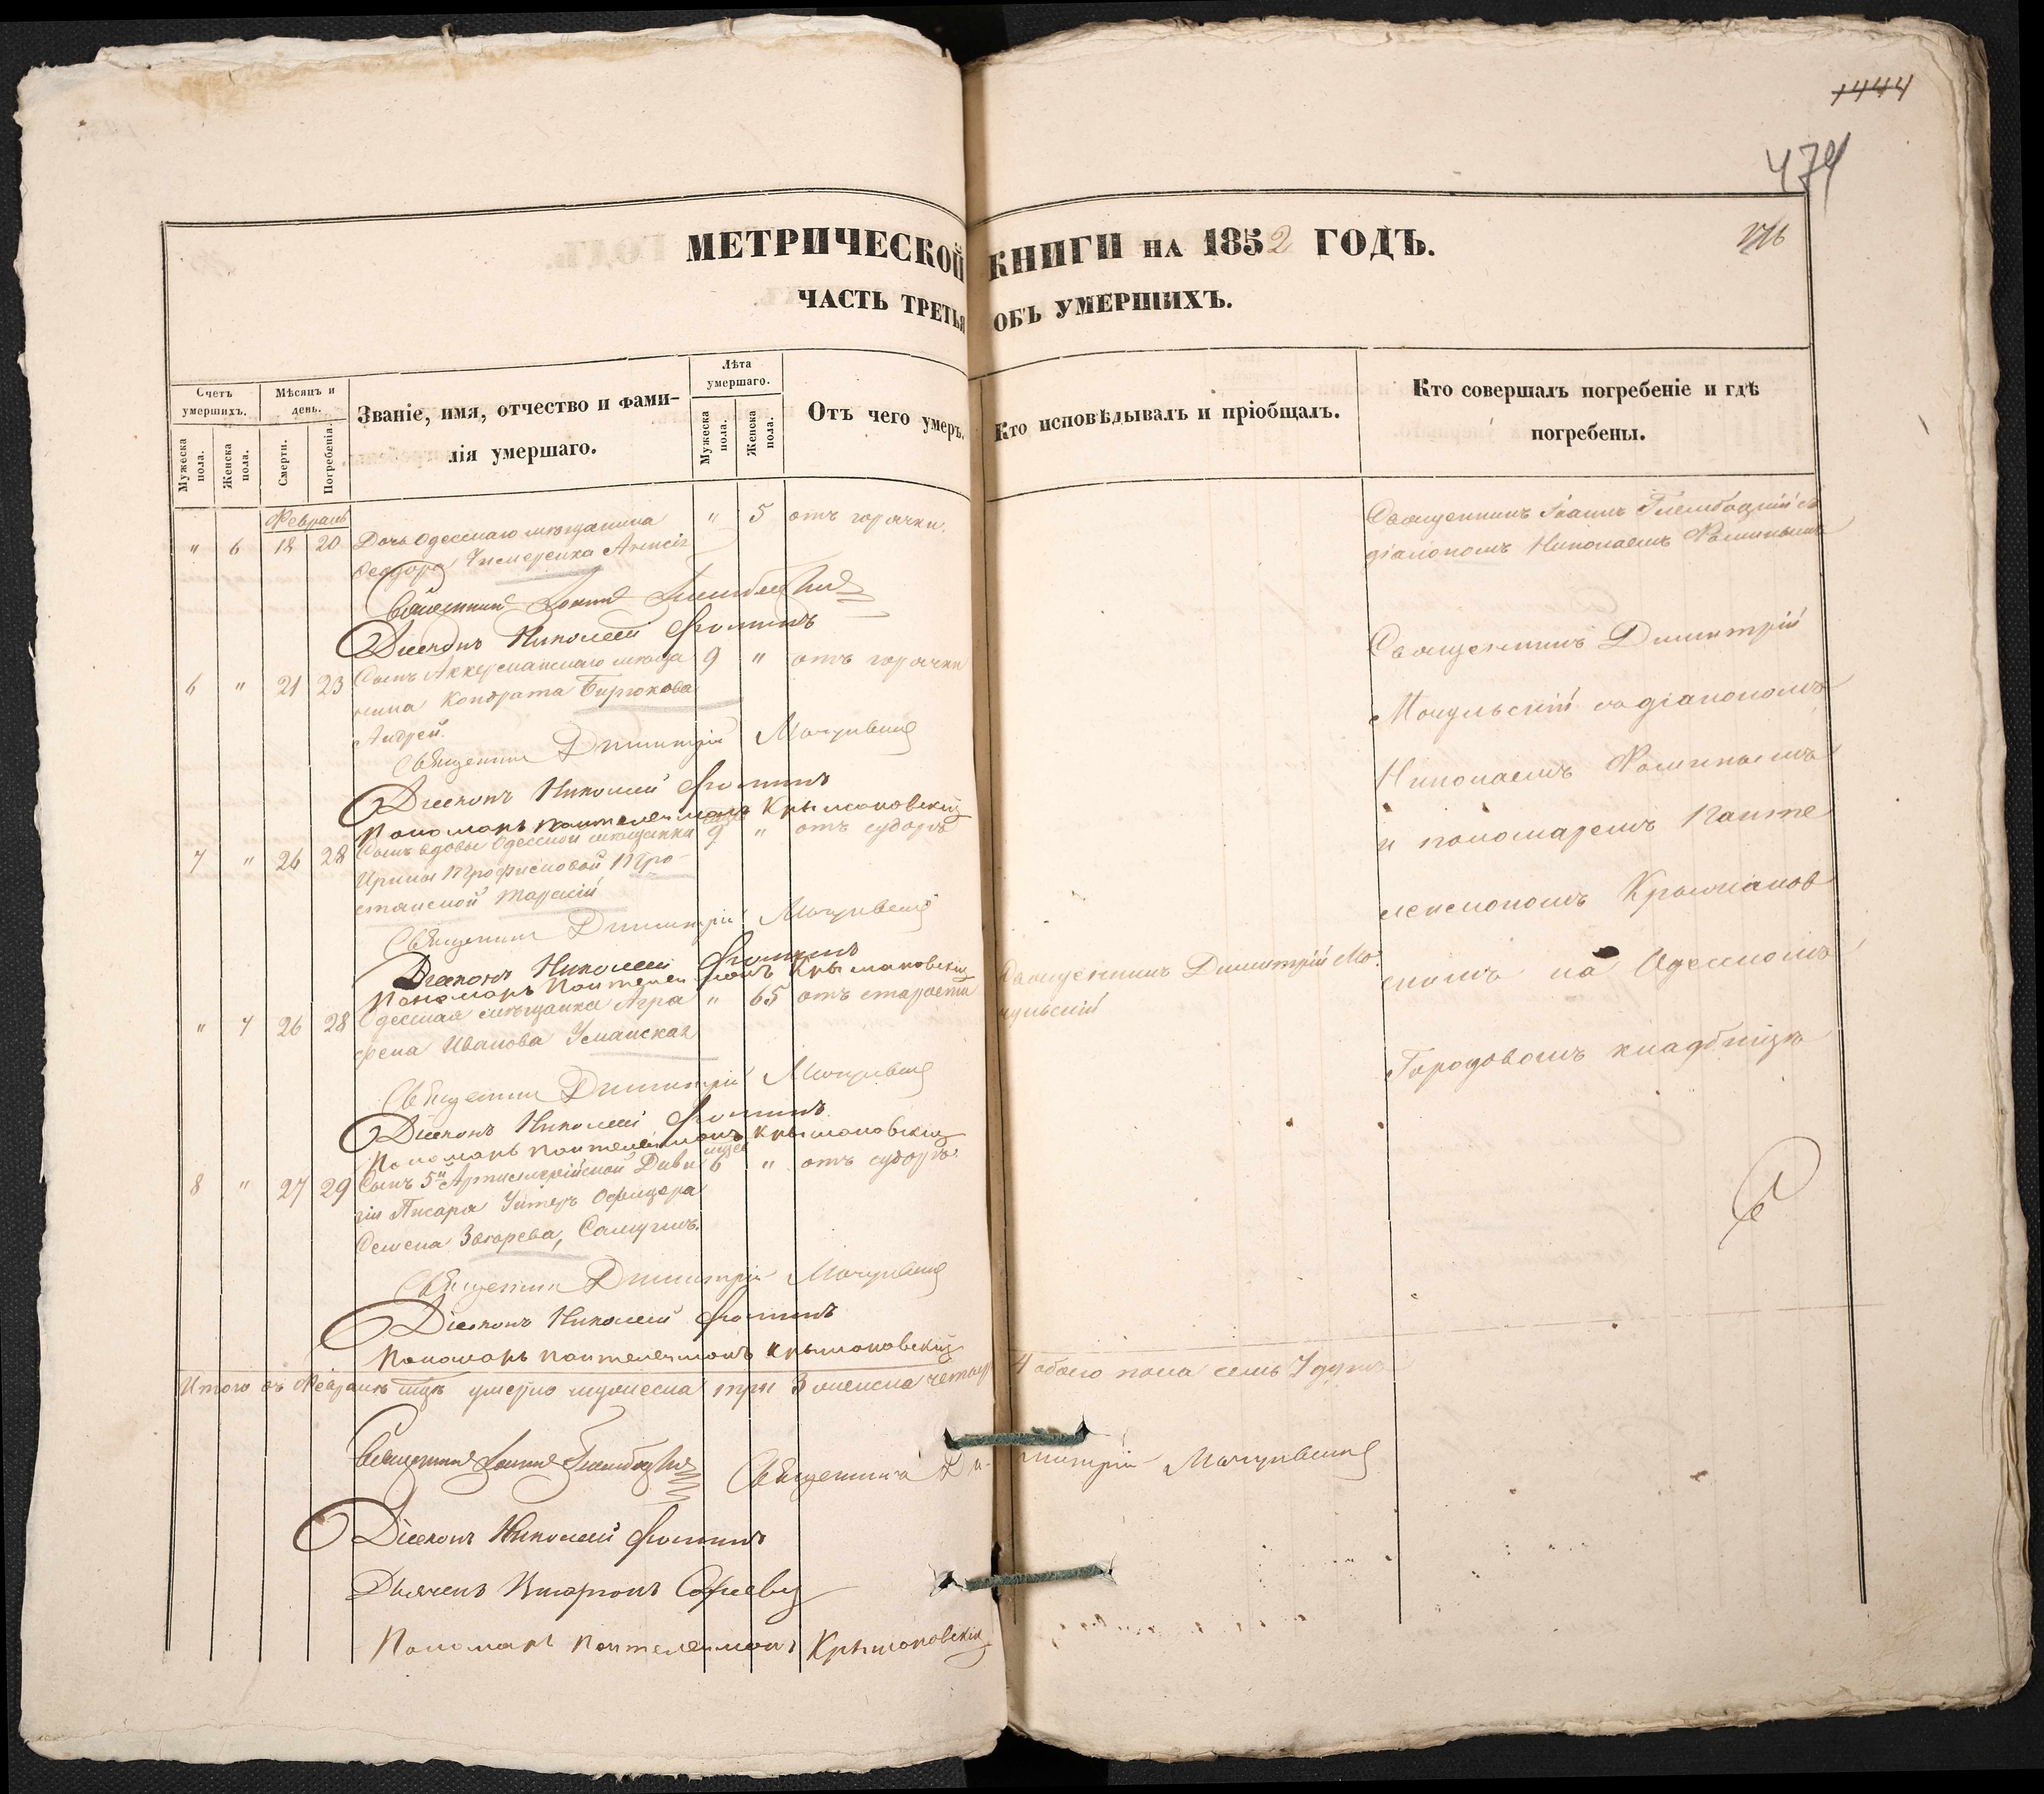 1444
474
МЕТРИЧЕСКОЙ КНИГИ НА 1852 ГОДЪ.
ЧАСТЬ ТРЕТЬЯ ОБЪ УМЕРШИХЪ.
Счетъ умершихъ.
Мужеска пола.
Женска пола.
Мѣсяцъ и день.
Смерти.
Погребенія.
Званіе, имя, отчество и фами-
лія умершаго.
Лѣта умершаго.
Мужеска пола.
Женска пола.
Отъ чего умеръ.
Кто исповѣдывалъ и пріобщалъ.
Кто совершалъ погребеніе и гдѣ
погребены.
Февраль
" 6 18 20 Дочь Одесскаго мѣщанина " 5 отъ горячки.
Феодора Чисмеренка
Священникъ Іоаннъ Глембоцкій съ
діакономъ Николаемъ Фоминымъ
Діаконъ Николай Фоминъ
6 " 21 23 Сынъ Аккерманскаго мѣща 9 " отъ горячки
нина Кондрата Бирюкова
Андрей.
Священникъ Димитрій Мочульскій
Діаконъ Николай Фоминъ
Пономарь Пантелеимонъ Крыжановскій
7 " 26 28 Сынъ вдовы Одесской мѣщанки 9 " отъ судоръ
Ирины Трофимовой
Священникъ Димитрій Мочульскій
Діаконъ Николай Фоминъ
Пономарь Пантелеимонъ Крыжановскій
" 7 26 28 Одесская мѣщанка Агра " 65 отъ старости
фена Иванова Уманская
Священникъ Димитрій Мо-
чульскій
Священникъ Димитрій Мочульскій
Діаконъ Николай Фоминъ
Пономарь Пантелеимонъ Крыжановскій
8 " 27 29 Сынъ 5й Артиллерійской Диви 6 " отъ судоръ.
зіи Писаря Унтеръ Офицера
Семена Захарева, Самуилъ.
Священникъ Димитрій Мочульскій
Діаконъ Николай Фоминъ
Пономарь Пантелеимонъ Крыжановскій
Священникъ Димитрій
Мочульскій съ діакономъ
Николаемъ Фоминымъ
и пономаремъ Панте
леимономъ Крыжанов
скимъ на Одесскомъ
Городовомъ кладбищѣ
Итого въ Февралѣ мцѣ умерло мужеска три 3 женска четыр 4 обоего пола семь 7 душъ
Священникъ Іоаннъ Глембоцкій Священникъ Димитрій Мочульскій
Діаконъ Николай Фоминъ
Пономарь Пантелеимонъ Крыжановскій